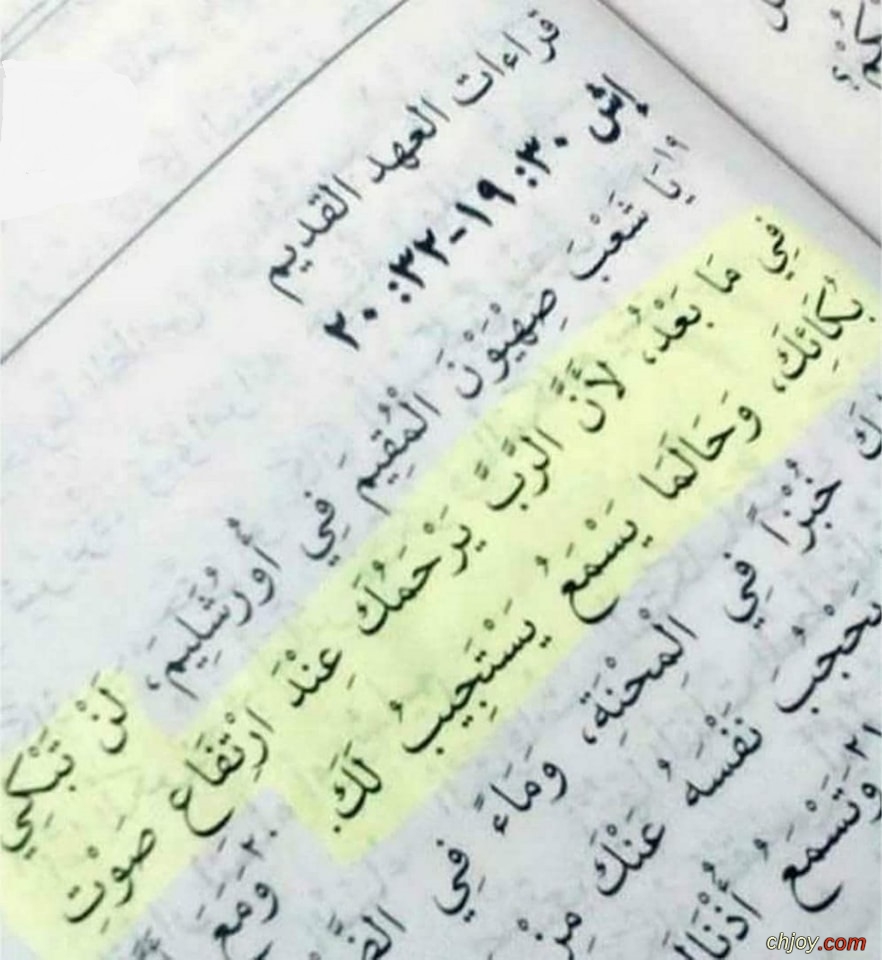 قراءات العهد القديم
إش ٣٠: ١٩-٣٢: ٢٠
١٩ يَا شَعْبَ صِهْيَوْنَ الْمُقِيمَ فِي أُورُشَلِيمَ، لَنْ تَبْكِي
فِي مَا بَعْدُ، لأَنَّ الرَّبَّ يَرْحَمُكَ عِنْدَ ارْتِفَاعِ صَوْتِ
بُكَائِكَ، وَحَالَمَا يَسْمَعُ يَسْتَجِيبُ لَكَ. ٢٠ وَمَعَ
خُبْزاً فِي الْمِحْنَةِ، وَمَاءً فِي
يَحْجُبَ نَفْسَهُ عَنْكَ مِنْ
٢١ وَتَسْمَعُ
chjoy.com